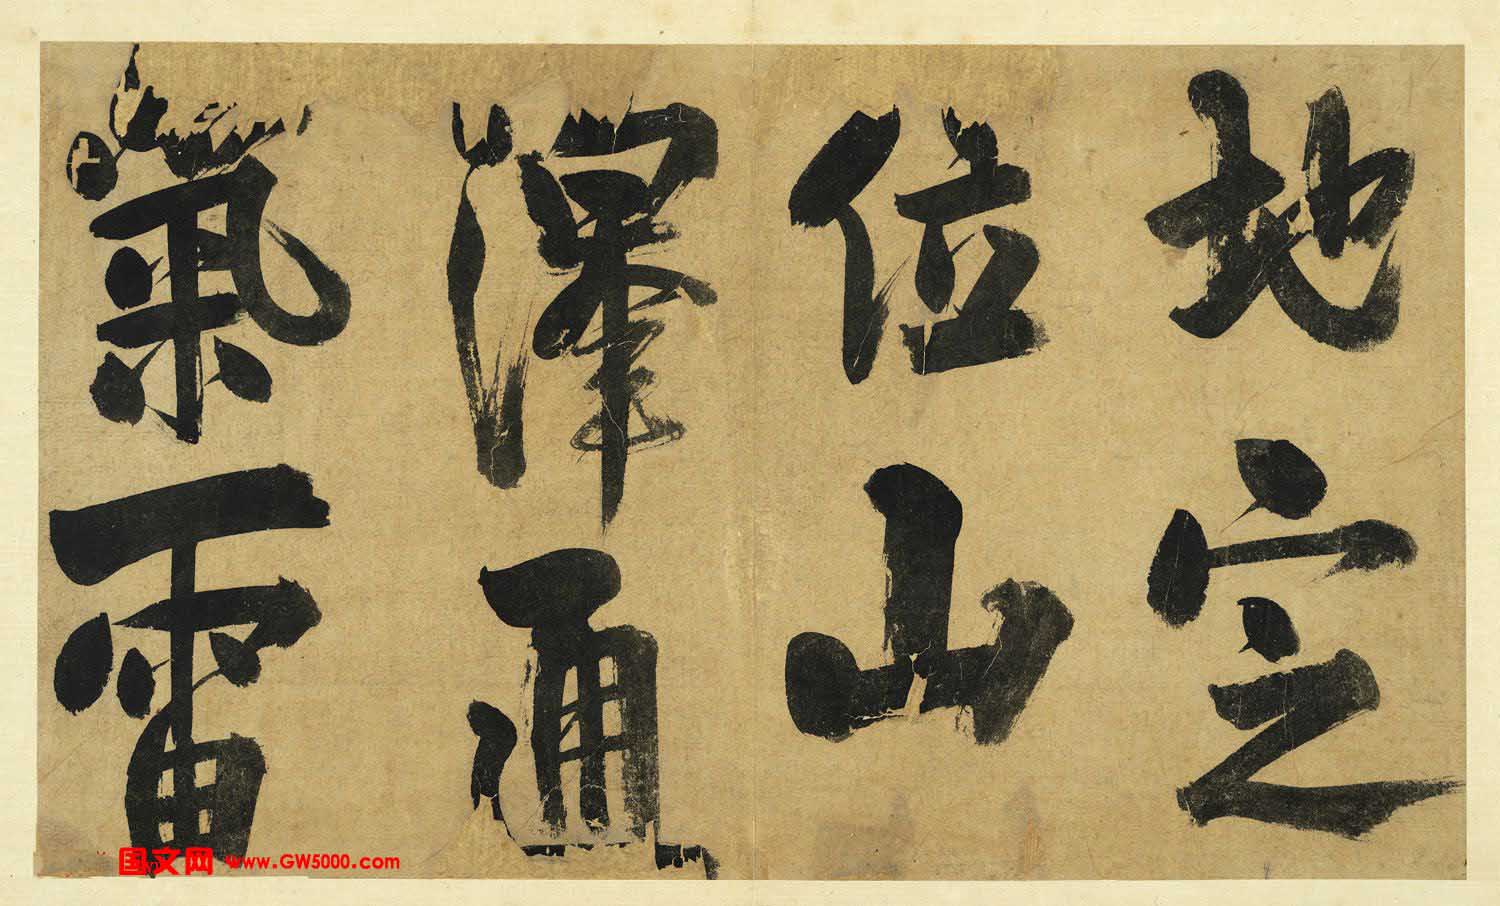 地定
位山
澤通
氣雷
国文网 www.GW5000.com